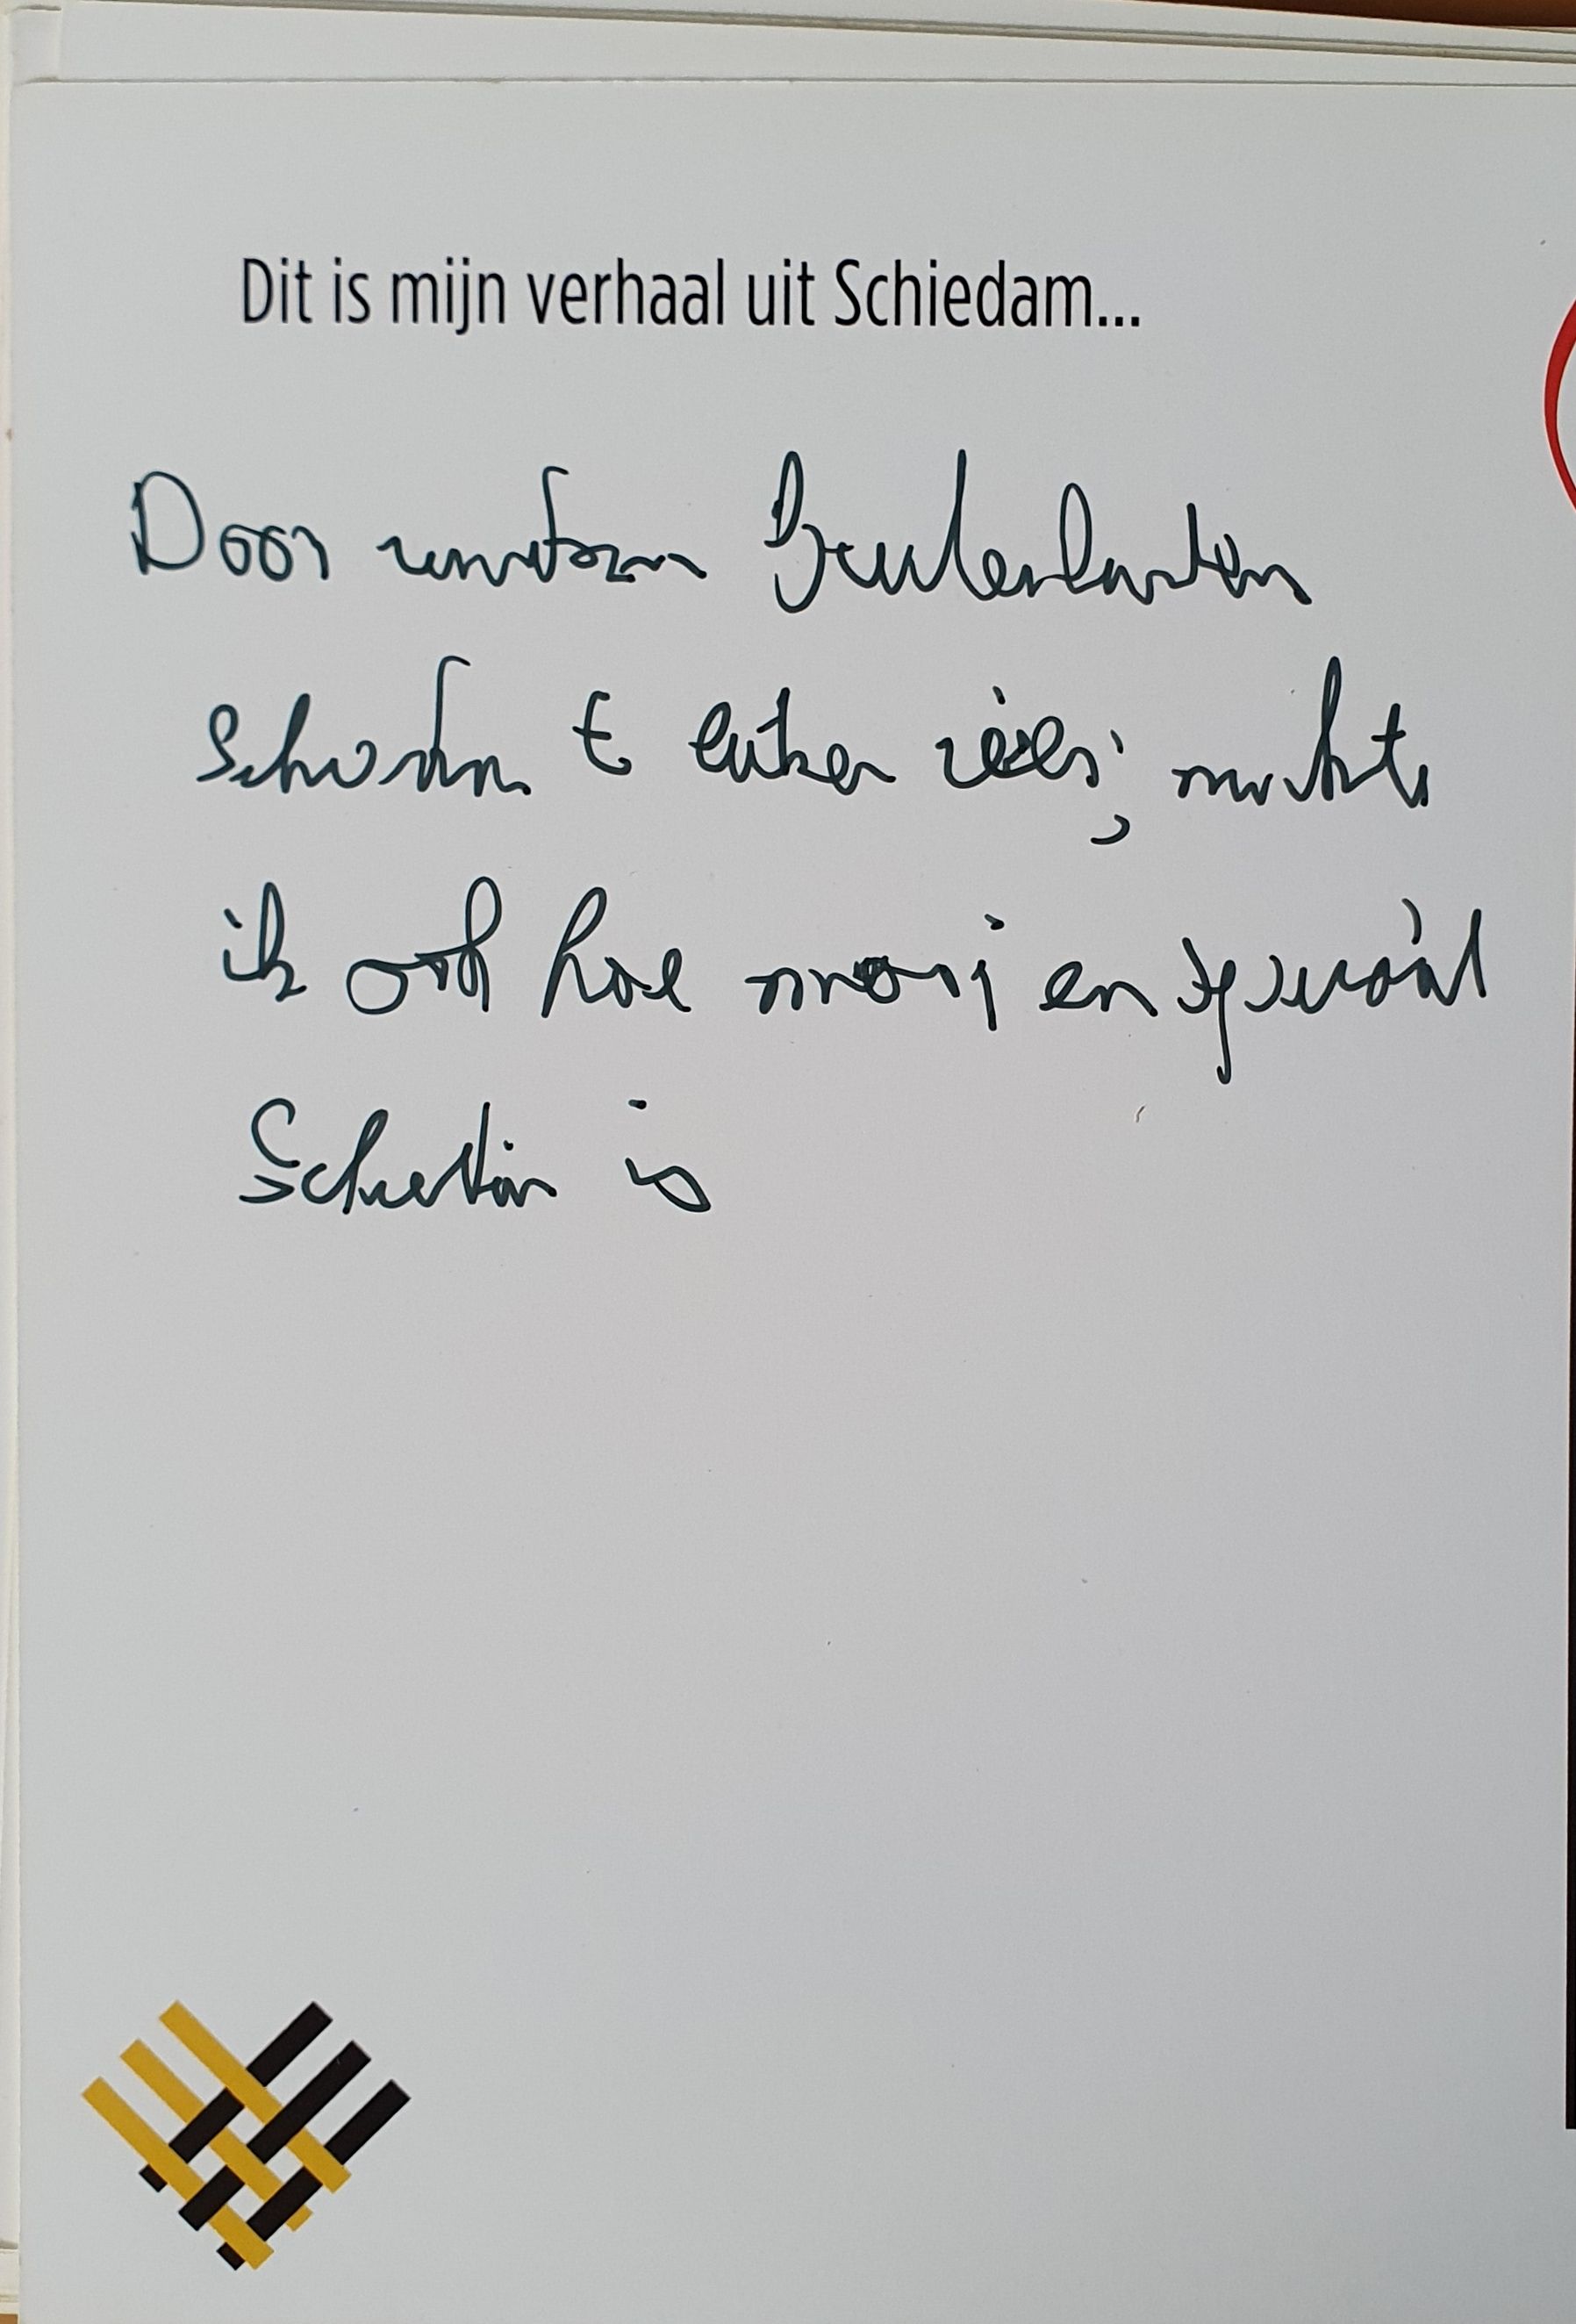 Dit is mijn verhaal uit Schiedam...
Door
Schiedam te laten zien, merkte
ik ook hoe mooi en speciaal
Schiedam is